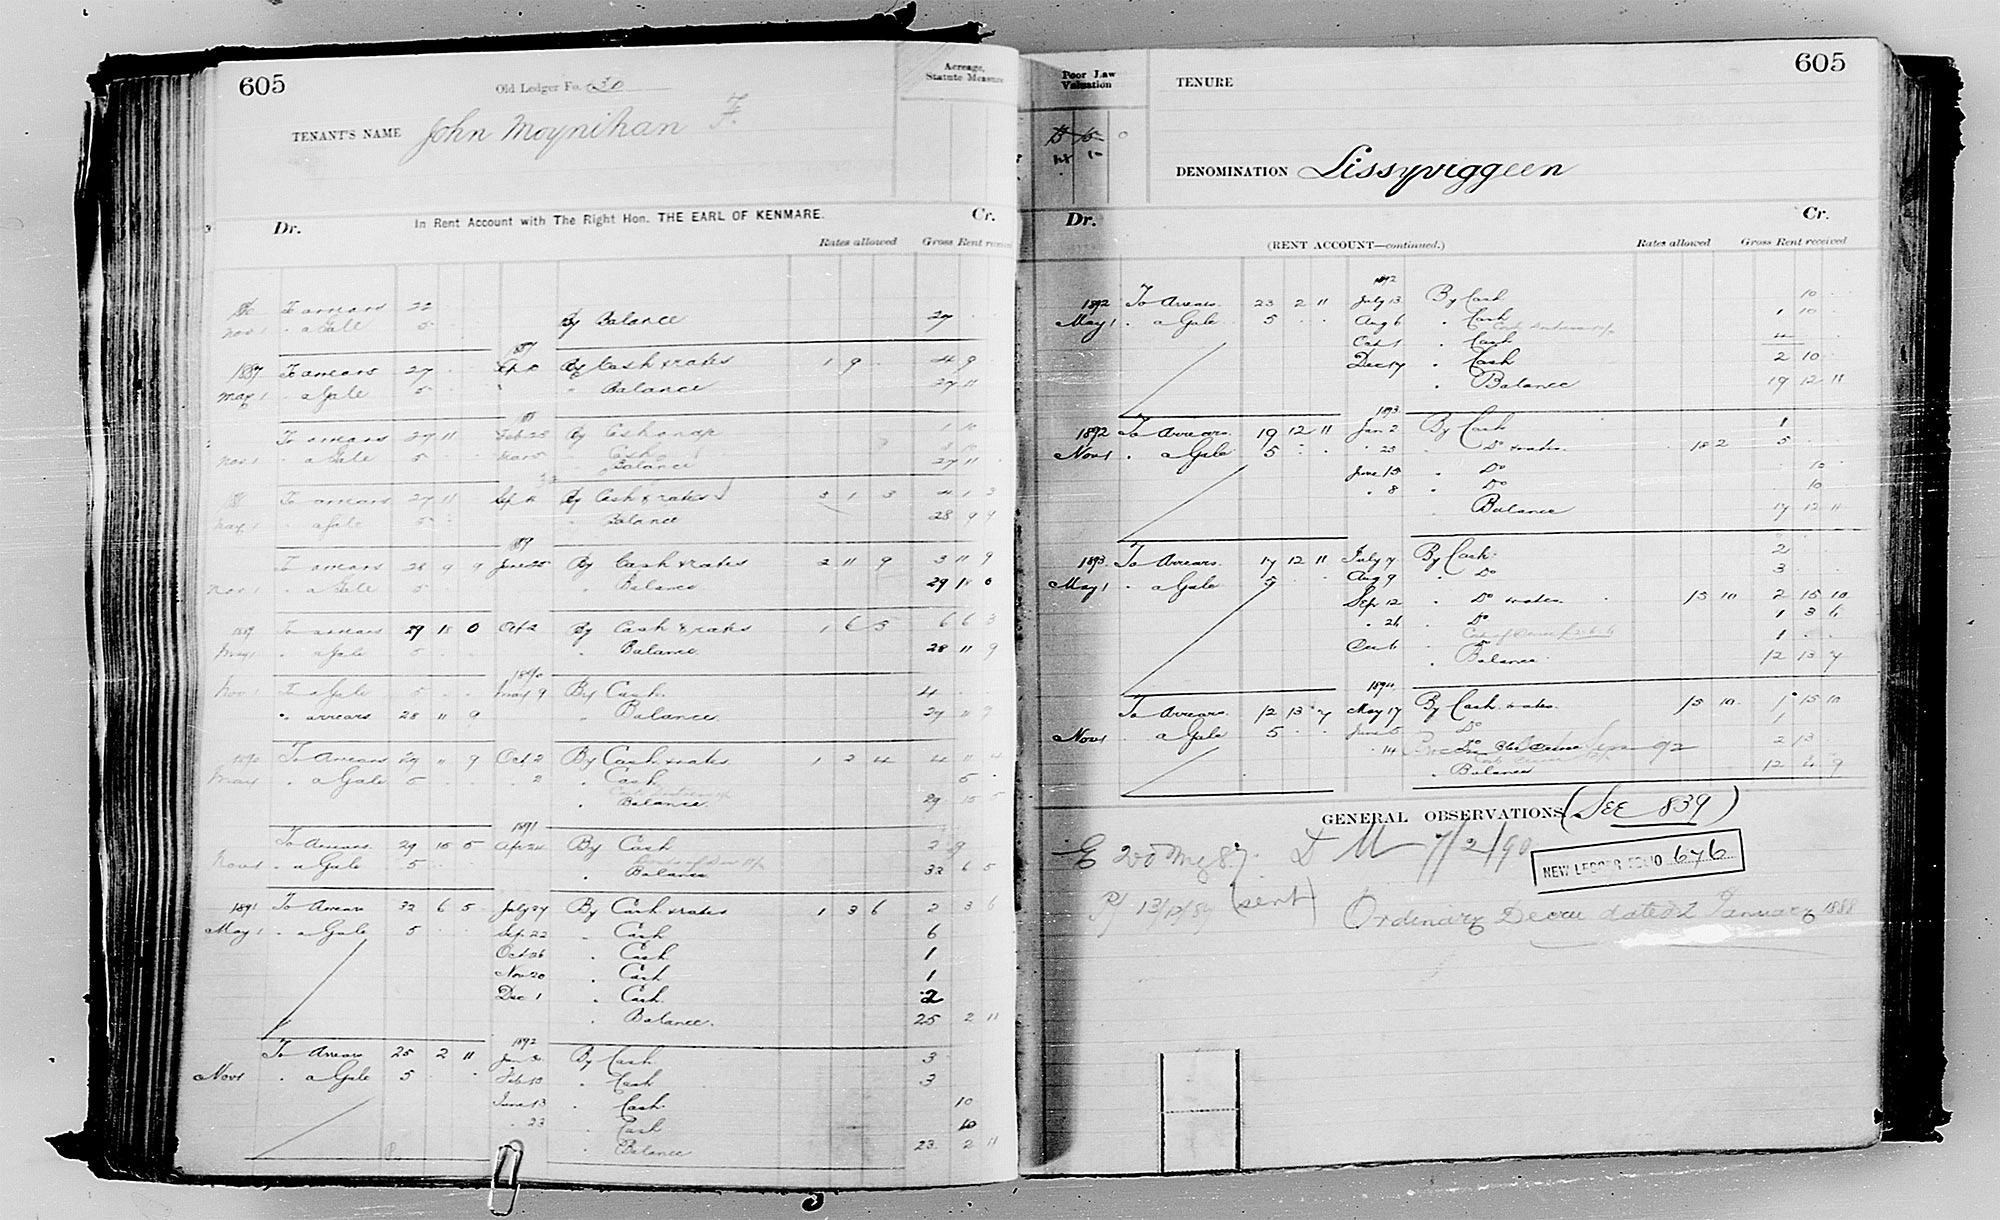 605
Old Ledger Fo. 50
TENANT'S NAME John Moynihan F.
Acreage, Statute Measure
In Rent Account with The Right Hon. THE EARL OF KENMARE.
Dr. Cr.
Rates allowed Gross Rent received
To arrears 22
Nov 1 " a Gale 5 By Balance 27
87
1887 To arrears 27 Sep By Cash & rates 1 9 4 9
May 1 " a Gale 5 " Balance 27 11
88
To arrears 27 11 Feb 25 By Cash 1 10
Nov 1 " a Gale 5 Cash 3 10
Balance 27 11
To arrears 27 11 Sep By Cash & rates 3 1 3 4 1 3
May 1 " a Gale 5 " Balance 28 9 9
89
To arrears 28 9 9 June 25 By Cash & rates 2 11 9 3 11 9
Nov 1 " a Gale 5 " Balance 29 18 0
1889 To arrears 29 18 0 Oct 2 By Cash & rates 1 6 3 6 6 3
May 1 " a Gale 5 " Balance 28 11 9
1890
Nov 1 To a Gale 5 May 9 By Cash 4
" arrears 28 11 9 " Balance 29 11 9
1890 To Arrears 29 11 9 Oct 2 By Cash & rates 1 2 4 4 11 4
May 1 " a Gale 5 " 2 " Cash 5
" Balance 29 15 5
1891
To Arrears 29 15 5 Apr 24 By Cash 2 9
Nov 1 " a Gale 5
" Balance 32 6 5
1891 To Arrears 32 6 5 July 27 By Cash & rates 1 3 6 2 3 6
May 1 " a Gale 5 Sep 22 " Cash 6
Oct 26 " Cash 1
Nov 20 " Cash 1
Dec 1 " Cash 2
" Balance 25 2 11
1892
To Arrears 25 2 11 Jan By Cash 3
Nov 1 " a Gale 5 Feb 10 " Cash 3
June 13 " Cash 10
" 23 " Cash 10
" Balance 23 2 11
605
Poor Law Valuation
TENURE
DENOMINATION Lissyviggeen
Dr. Cr.
(RENT ACCOUNT—continued.)
Rates allowed Gross Rent received
1892
1892 To Arrears 23 2 11 July 13 By Cash 10
May 1 " a Gale 5 Aug 6 " Cash 1 10
Oct 1 " Cash 4
Dec 17 " Cash 2 10
" Balance 19 12 11
1893
1892 To Arrears 19 12 11 Jan 2 By Cash 1
Nov 1 " a Gale 5 " 23 " Do & rates 18 2 5
June 15 " Do 10
" 8 " Do 10
" Balance 17 12 11
1893 To Arrears 17 12 11 July 7 By Cash 2
May 1 " a Gale 5 Aug 9 " Do 3
Sep 12 " Do & rates 15 10 2 15 10
" 26 " Do 1 3 6
Oct 6 " Do 1
" Balance 12 13 7
1894
To Arrears 12 13 7 May 17 By Cash & rates 15 10 1 15 10
Nov 1 " a Gale 5 June 5 " Do 1
" 14 " Do 2 13
" Balance 12 4 9
GENERAL OBSERVATIONS (See 839)
7/2/90
NEW LEDGER FOLIO 676
(sent) Ordinary Decree dated 2 January 1888